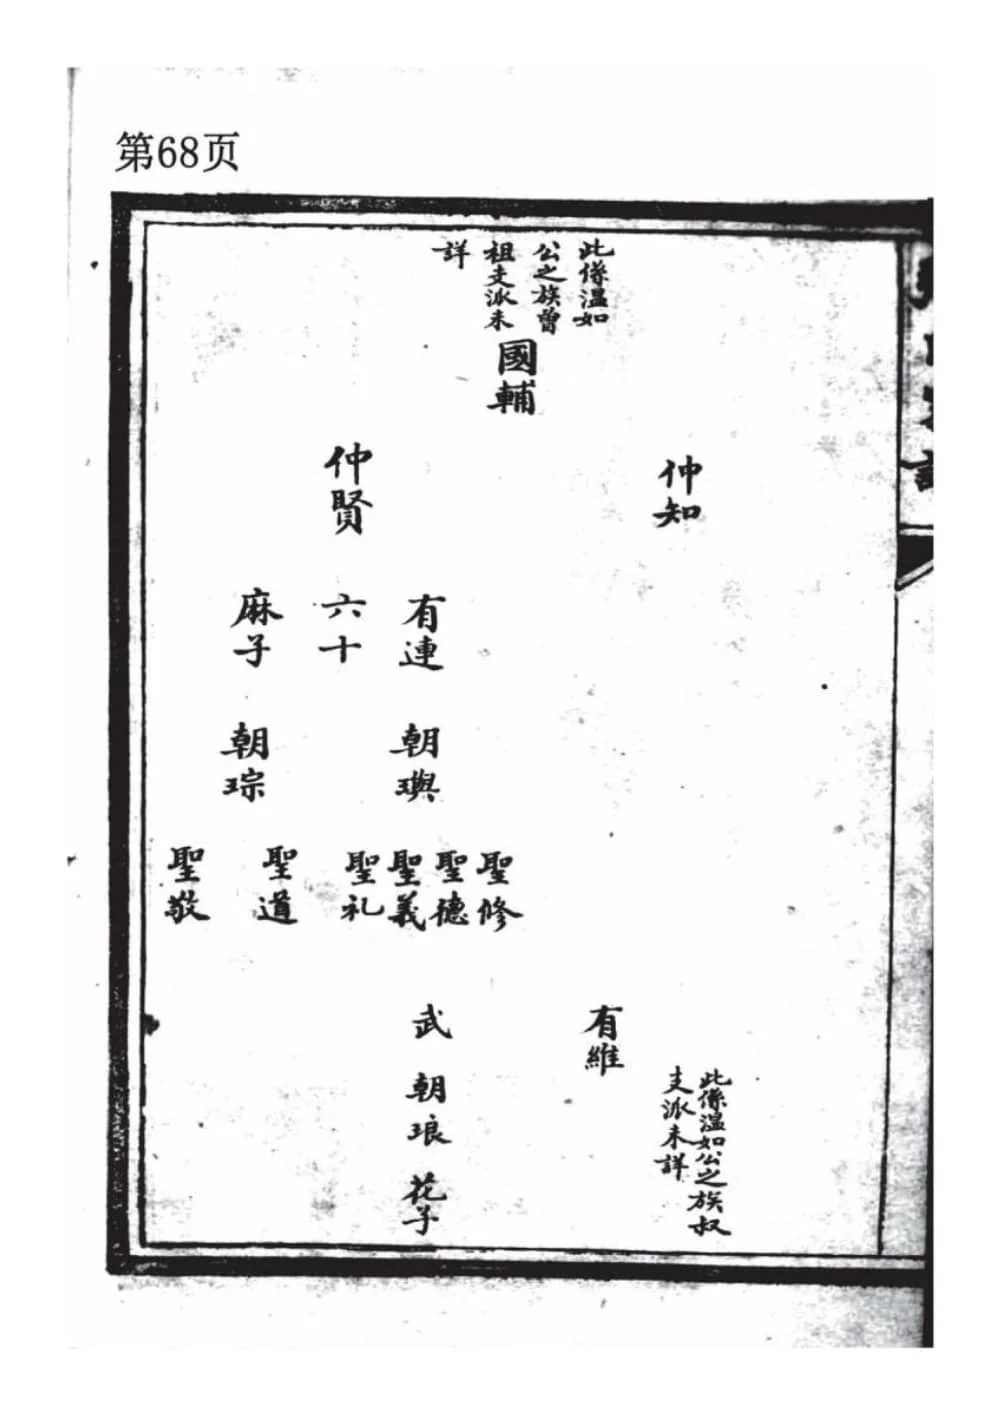 第68页
此係溫如
公之族曾
祖支派未
詳
國輔
仲知
仲賢
有連
六十
麻子
朝璵
朝琮
聖修
聖德
聖義
聖礼
聖道
聖敬
有維
此係溫如公之族叔
支派未詳
武
朝琅
花子